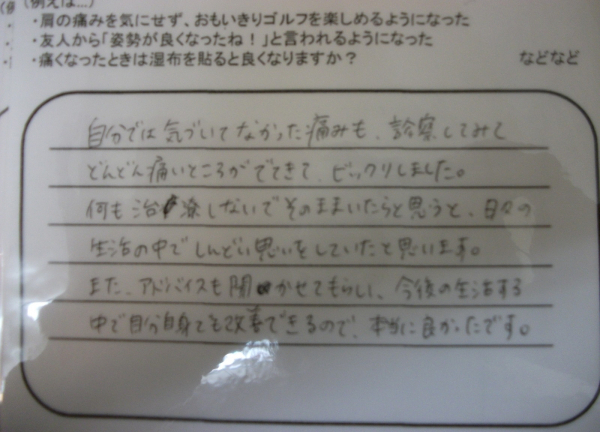 (例えば...)
・肩の痛みを気にせず、おもいきりゴルフを楽しめるようになった
・友人から「姿勢が良くなったね！」と言われるようになった
・痛くなったときは湿布を貼ると良くなりますか？
などなど
自分では気づいてなかった痛みも、診察してみて
どんどん痛いところがでてきて、ビックリしました。
何も治療しないでそのままいたらと思うと、日々の
生活の中でしんどい思いをしていたと思います。
また、アドバイスも聞かせてもらい、今後の生活する
中で自分自身でも改善できるので、本当に良かったです。